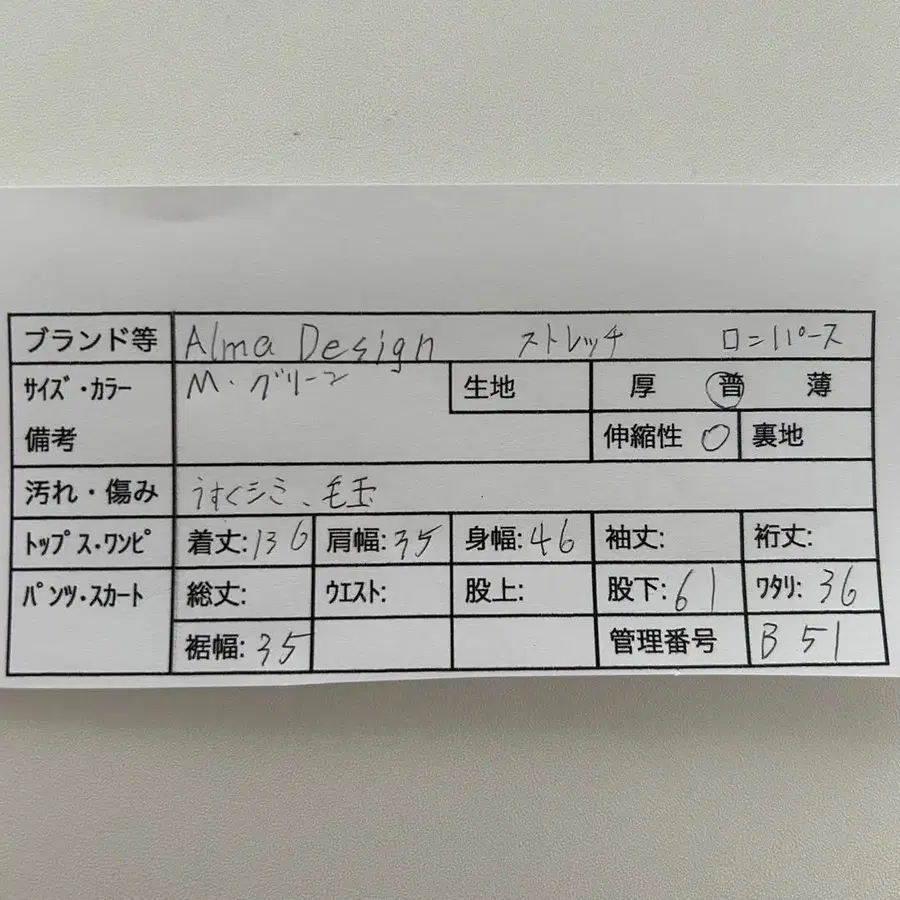 ブランド等 Alma Design ストレッチ ロンパース
サイズ・カラー M・グリーン 生地 厚 普 薄
備考 伸縮性 ○ 裏地
汚れ・傷み うすくシミ、毛玉
トップス・ワンピ 着丈:136 肩幅:35 身幅:46 袖丈: 裄丈:
パンツ・スカート 総丈: ウエスト: 股上: 股下:61 ワタリ:36
裾幅:35 管理番号 B51